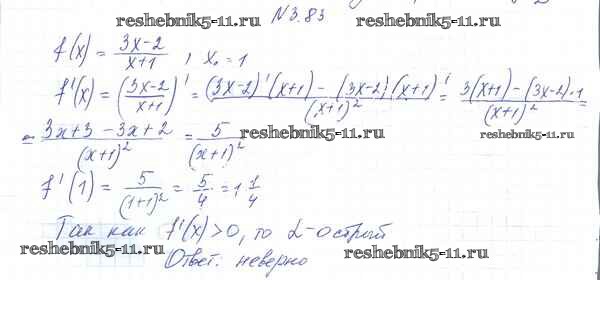 N 3.83
reshebnik5-11.ru
f(x) = (3x-2)/(x+1), x₀ = 1
f'(x) = ((3x-2)/(x+1))' = ((3x-2)'(x+1) - (3x-2)(x+1)')/(x+1)² = (3(x+1) - (3x-2)·1)/(x+1)² =
reshebnik5-11.ru
reshebnik5-11.ru
= (3x+3-3x+2)/(x+1)² = 5/(x+1)²
reshebnik5-11.ru
reshebnik5-11.ru
f'(1) = 5/(1+1)² = 5/4 = 1 1/4
Так как f'(x) > 0, то α - острый
reshebnik5-11.ru
reshebnik5-11.ru
Ответ: неверно